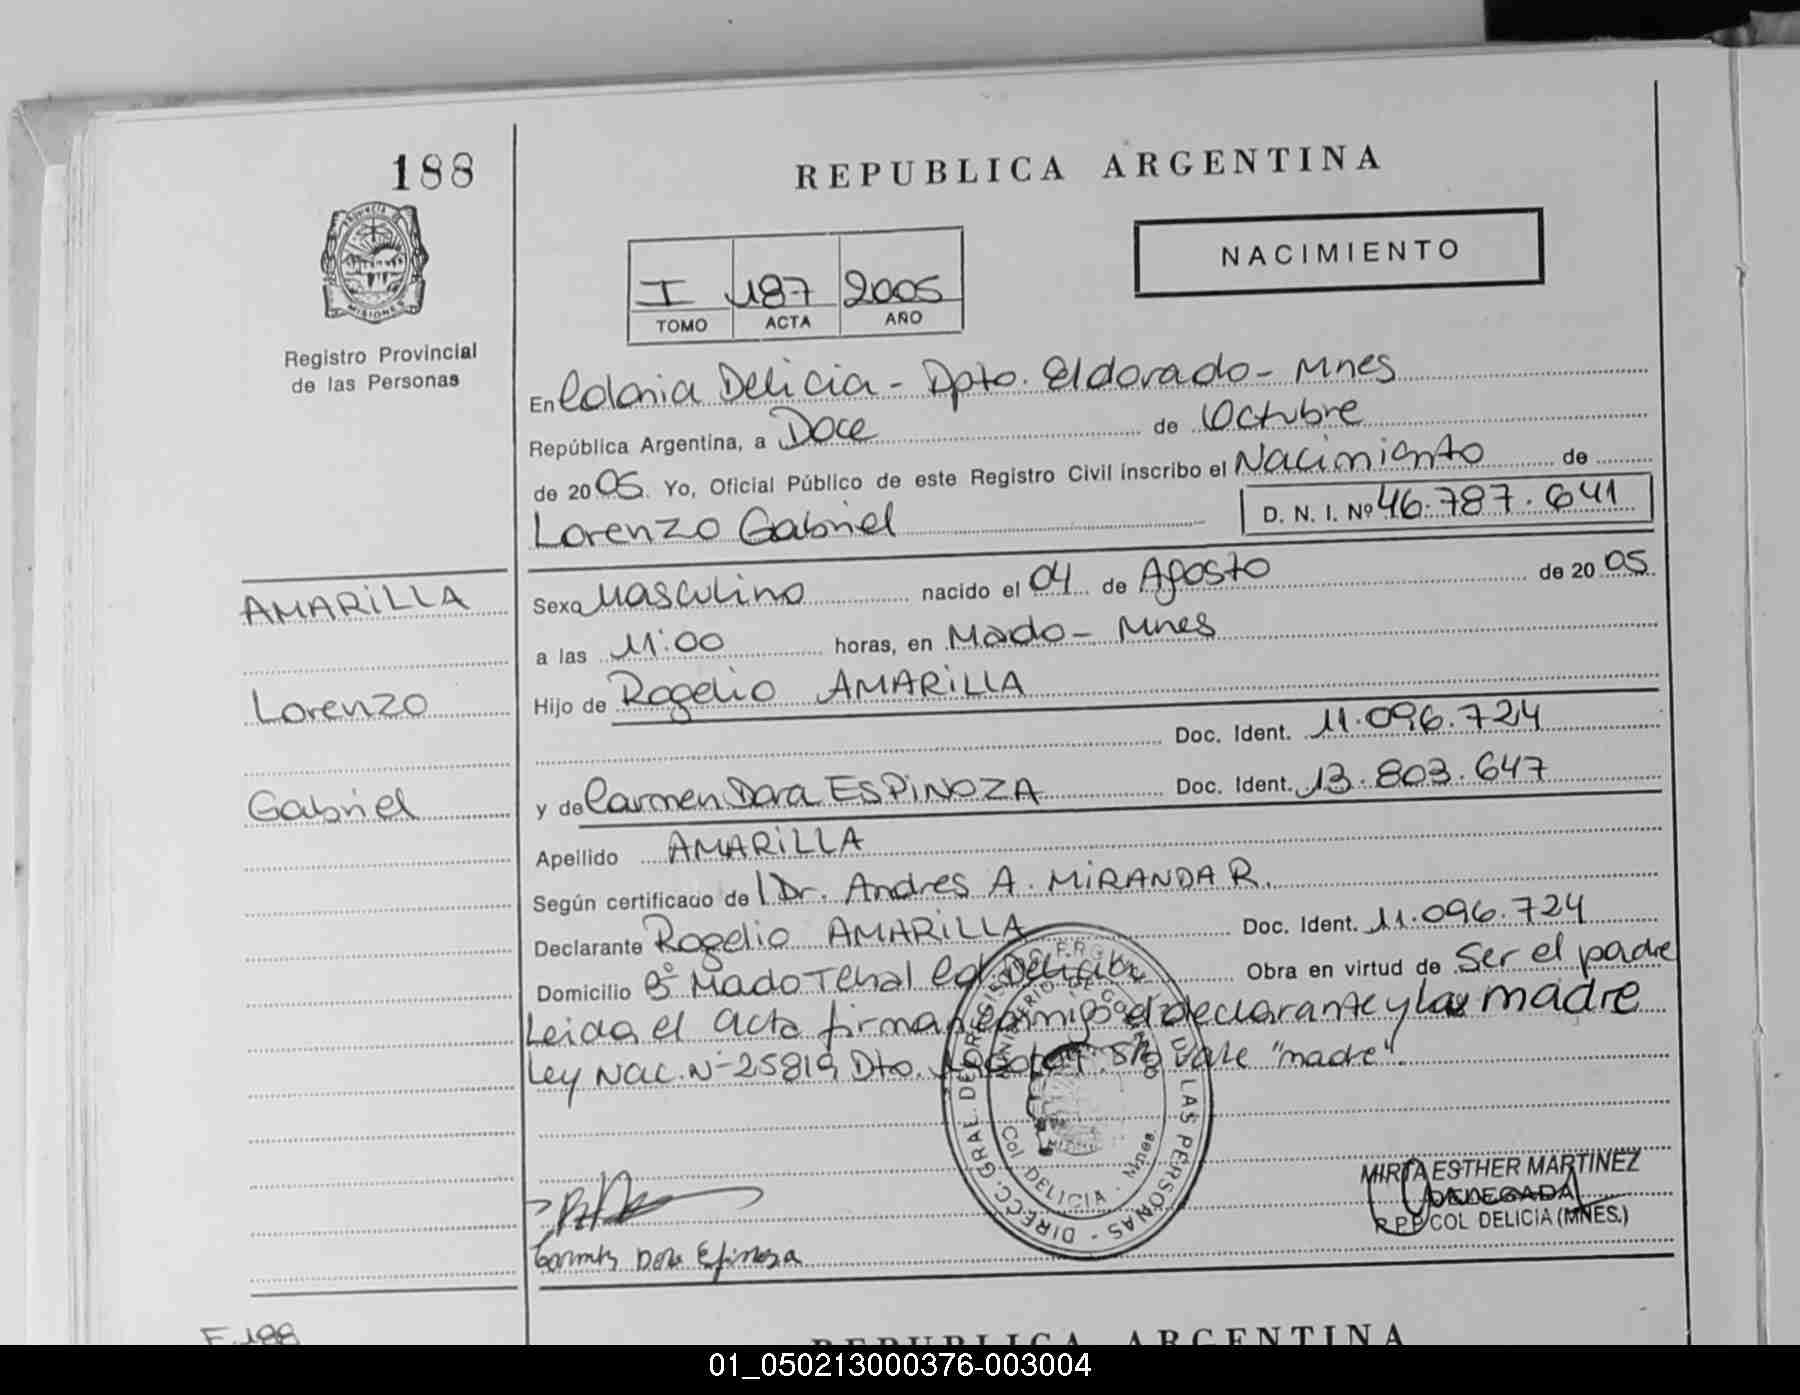 188
REPUBLICA ARGENTINA
PROVINCIA DE
MISIONES
Registro Provincial
de las Personas
NACIMIENTO
I 187 2005
TOMO ACTA AÑO
En Colonia Delicia - Dpto. Eldorado - Mnes
República Argentina, a Doce de Octubre
de 2005. Yo, Oficial Público de este Registro Civil inscribo el Nacimiento de
Lorenzo Gabriel D. N. I. Nº 46.787.641
AMARiLLA
Lorenzo
Gabriel
Sexo Masculino nacido el 04 de Agosto de 2005
a las 11:00 horas, en Mado - Mnes
Hijo de Rogelio AMARiLLA
Doc. Ident. 11.096.724
y de Carmen Dora ESPiNOZA Doc. Ident. 13.803.647
Apellido AMARiLLA
Según certificado de Dr. Andres A. MiRANDA R.
Declarante Rogelio AMARiLLA Doc. Ident. 11.096.724
Domicilio Bº Mado Tehal Col. Delicia Obra en virtud de Ser el padre
Leida el acta firman conmigo el declarante y la madre
Ley Nac. Nº 25819 Dto. S/b Vale "madre".
DIRECC. GRAL. DE REGISTRO DE LAS PERSONAS
MINISTERIO DE GOBIERNO
Col. DELICIA - Mnes.
MIRTA ESTHER MARTINEZ
DELEGADA
R.P.P. COL DELICIA (MNES.)
Dora Espinoza
F.188
REPUBLICA ARGENTINA
01_050213000376-003004